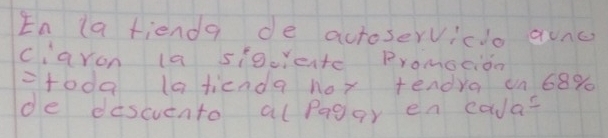 En la tienda de autoservicio anun
ciaron la siguiente Promoción
=toda la tienda hoy tendra un 68%
de descuento al Pagar en caja=